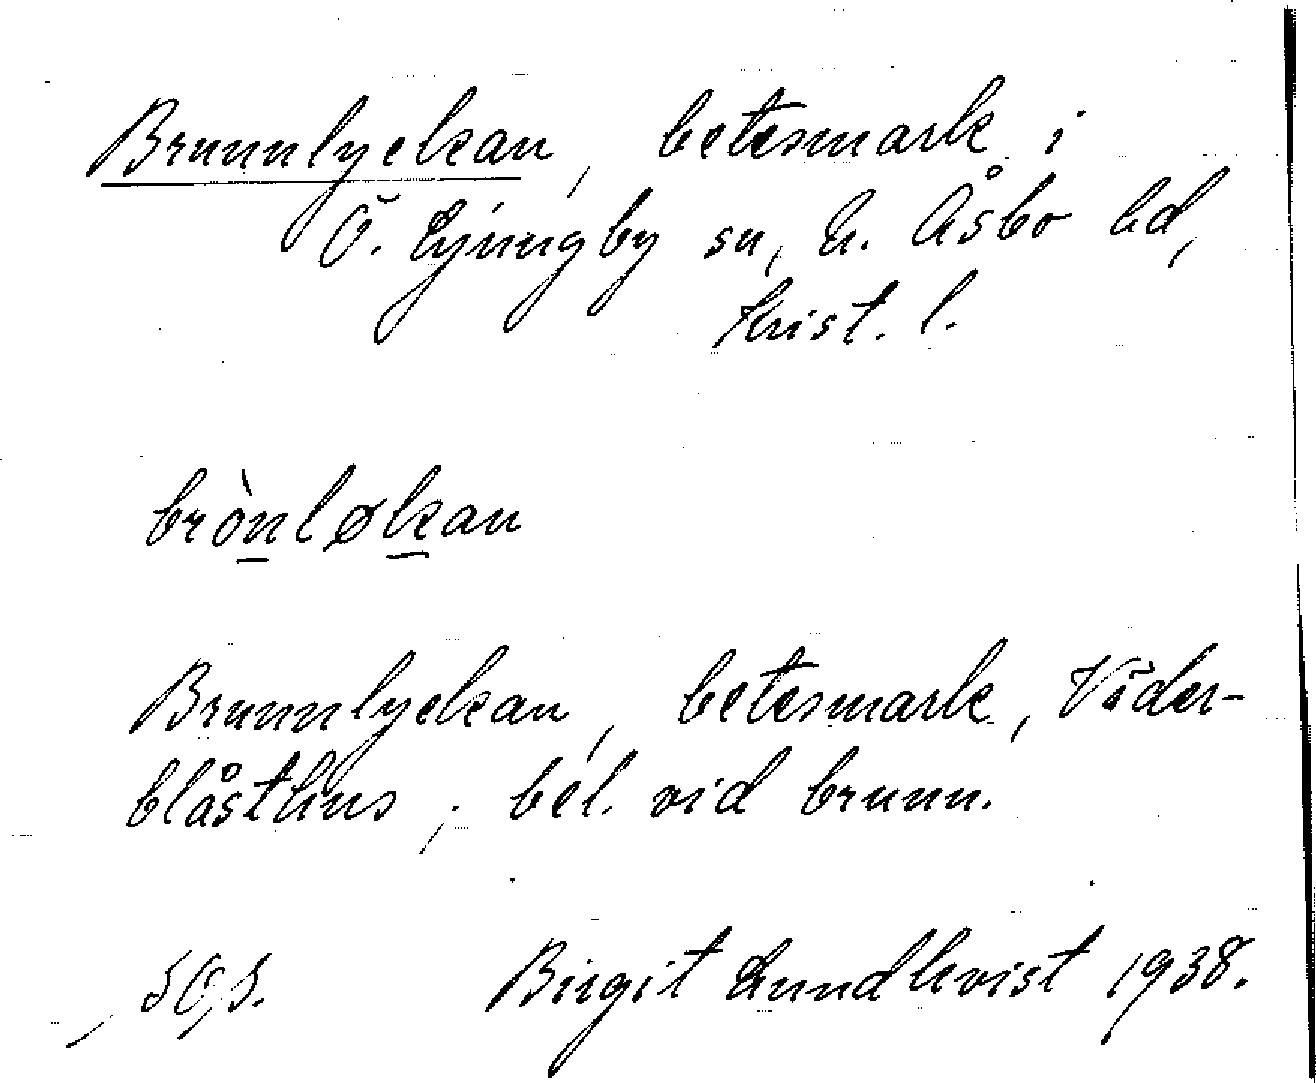 Brunnlyckan, betesmark i
Ö. Ljungby sn, N. Åsbo hd,
Krist. l.
brònløkan
Brunnlyckan, betesmark, Väder-
blåsthus; bel. vid brunn.
Birgit Lundkvist 1938.